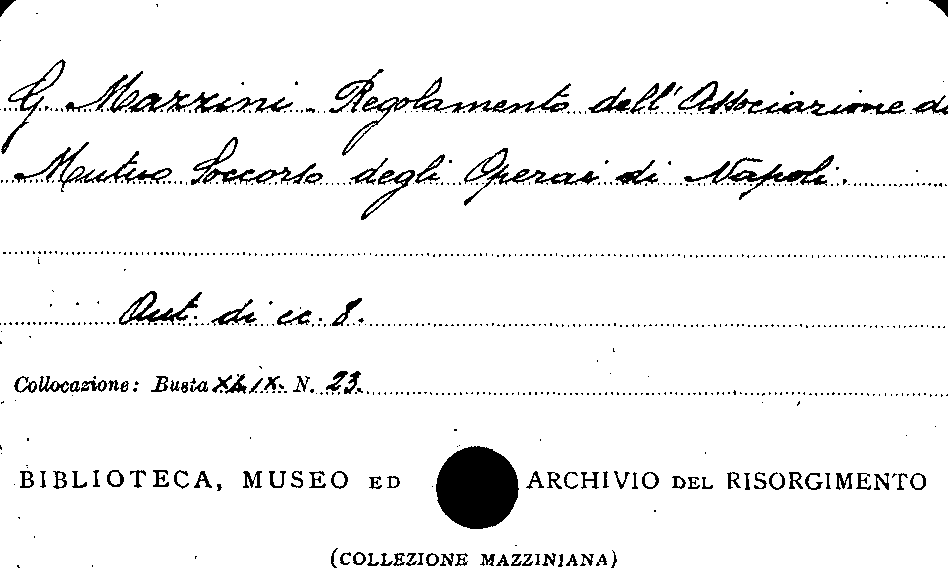 G. Mazzini. Regolamento dell'Associazione di
Mutuo Soccorso degli Operai di Napoli.
Aut. di cc. 8.
Collocazione: Busta XLIX. N. 23.
BIBLIOTECA, MUSEO ED ARCHIVIO DEL RISORGIMENTO
(COLLEZIONE MAZZINIANA)